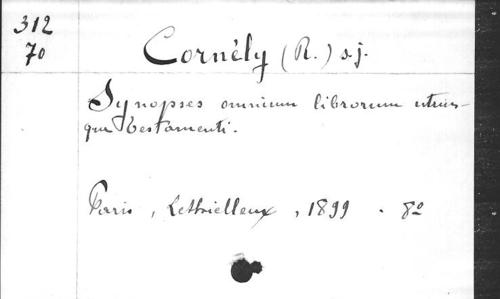 312
70
Cornély (R.) s.j.
Synopses omnium librorum utrius-
que Testamenti.
Paris, Lethielleux, 1899. 8º